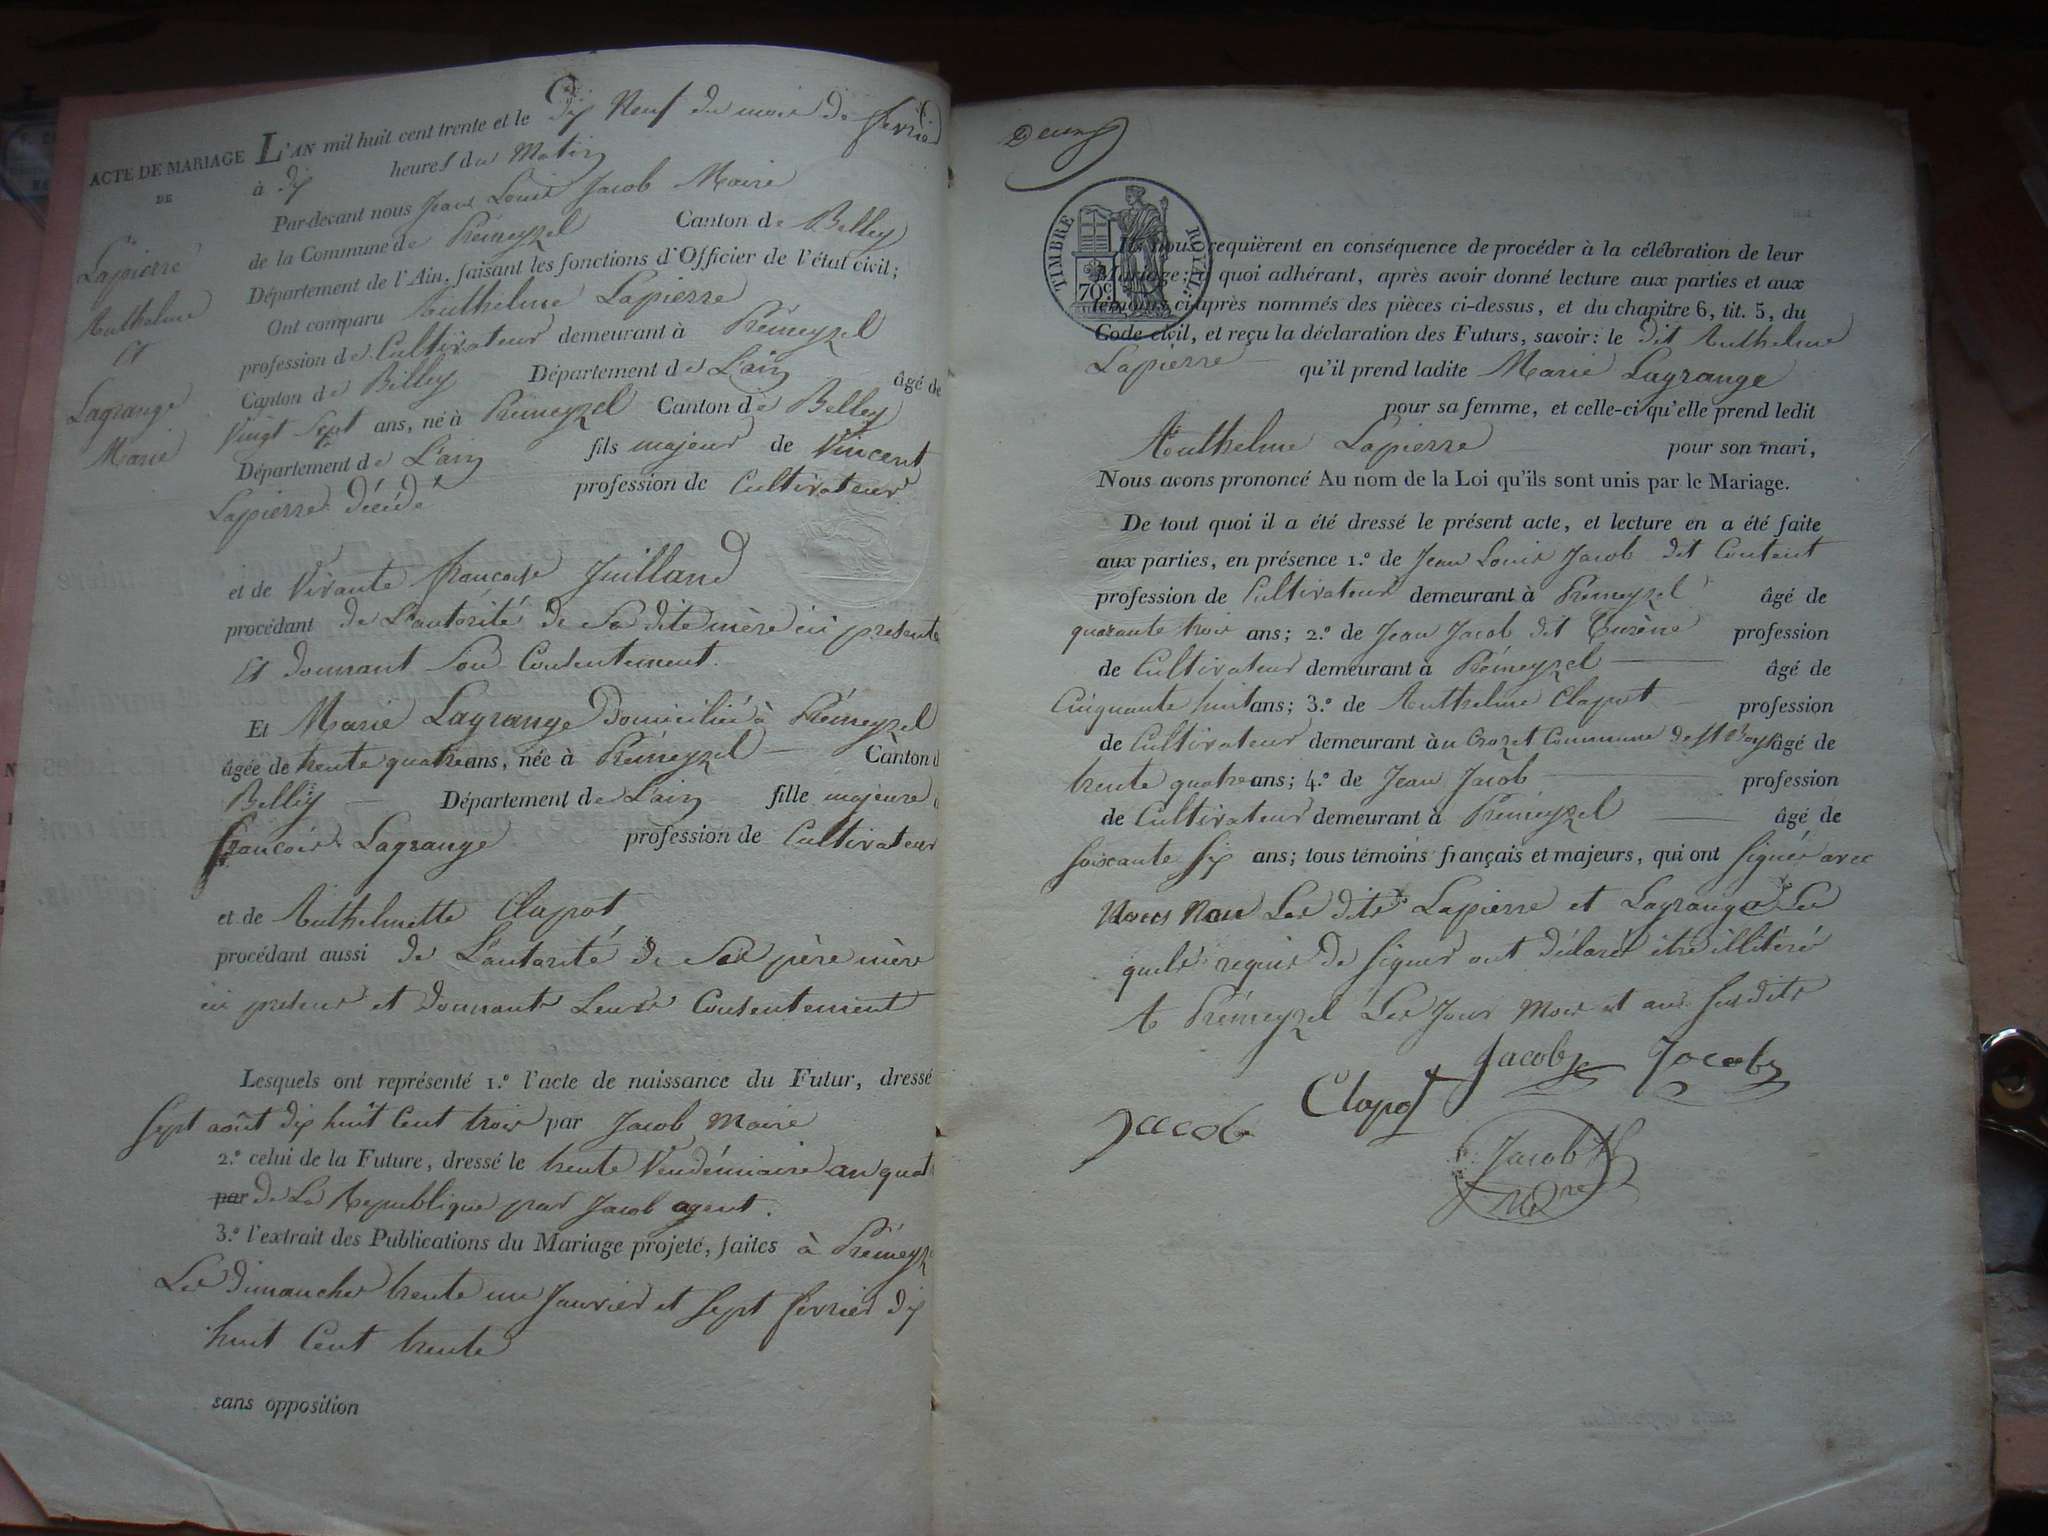 ACTE DE MARIAGE
DE
Lapierre
Anthelme
Et
Lagrange
Marie
L'AN mil huit cent trente et le Dix Neuf du mois de février
à dix heures du Matin
Par-devant nous Jean Louis Jacob Maire
de la Commune de Prémeyzel Canton de Belley
Département de l'Ain, faisant les fonctions d'Officier de l'état civil;
Ont comparu Anthelme Lapierre
profession de Cultivateur demeurant à Prémeyzel
Canton de Belley Département de L'ain âgé de
Vingt Sept ans, né à Prémeyzel Canton de Belley
Département de L'ain fils majeur de Vincent
Lapierre décédé profession de Cultivateur
et de Vivante françoise Juilland
procédant de L'autorité de Sa dite mère ici presente
Et donnant Son Contentement.
Et Marie Lagrange Domiciliée à Prémeyzel
âgée de trente quatre ans, née à Prémeyzel Canton d
Belley Département de L'ain fille majeure d
françois Lagrange profession de Cultivateur
et de Anthelmette Clapot
procédant aussi de L'autorité de Ses père mère
ici presens et donnants Leurs Contentement
Lesquels ont représenté 1.º l'acte de naissance du Futur, dressé
Sept août dix huit Cent trois par Jacob Maire
2.º celui de la Future, dressé le trente Vendémiaire an quat
par de La Republique par Jacob agent.
3.º l'extrait des Publications du Mariage projeté, faites à Prémeyz
Les dimanches trente un Janvier et Sept février dix
huit Cent trente
sans opposition
Deux
TIMBRE ROYAL
70c
Ils nous requièrent en conséquence de procéder à la célébration de leur
Mariage; à quoi adhérant, après avoir donné lecture aux parties et aux
témoins ci-après nommés des pièces ci-dessus, et du chapitre 6, tit. 5, du
Code civil, et reçu la déclaration des Futurs, savoir: le dit Anthelme
Lapierre qu'il prend ladite Marie Lagrange
pour sa femme, et celle-ci qu'elle prend ledit
Anthelme Lapierre pour son mari,
Nous avons prononcé Au nom de la Loi qu'ils sont unis par le Mariage.
De tout quoi il a été dressé le présent acte, et lecture en a été faite
aux parties, en présence 1.º de Jean Louis Jacob dit Content
profession de Cultivateur demeurant à Prémeyzel âgé de
quarante trois ans; 2.º de Jean Jacob dit Turène profession
de Cultivateur demeurant à Prémeyzel âgé de
Cinquante huit ans; 3.º de Anthelme Clapot profession
de Cultivateur demeurant à u Crozet Commune de St Boys âgé de
trente quatre ans; 4.º de Jean Jacob profession
de Cultivateur demeurant à Prémeyzel âgé de
soixante Six ans; tous témoins français et majeurs, qui ont Signés avec
Nous Non Les dits Lapierre et Lagrange Les
quels requis de Signer ont déclaré être illitéré
A Prémeyzel Les Jour Mois et ans Susdits
Jacob Jacob
Clapot
Jacob
Jacob
Mre